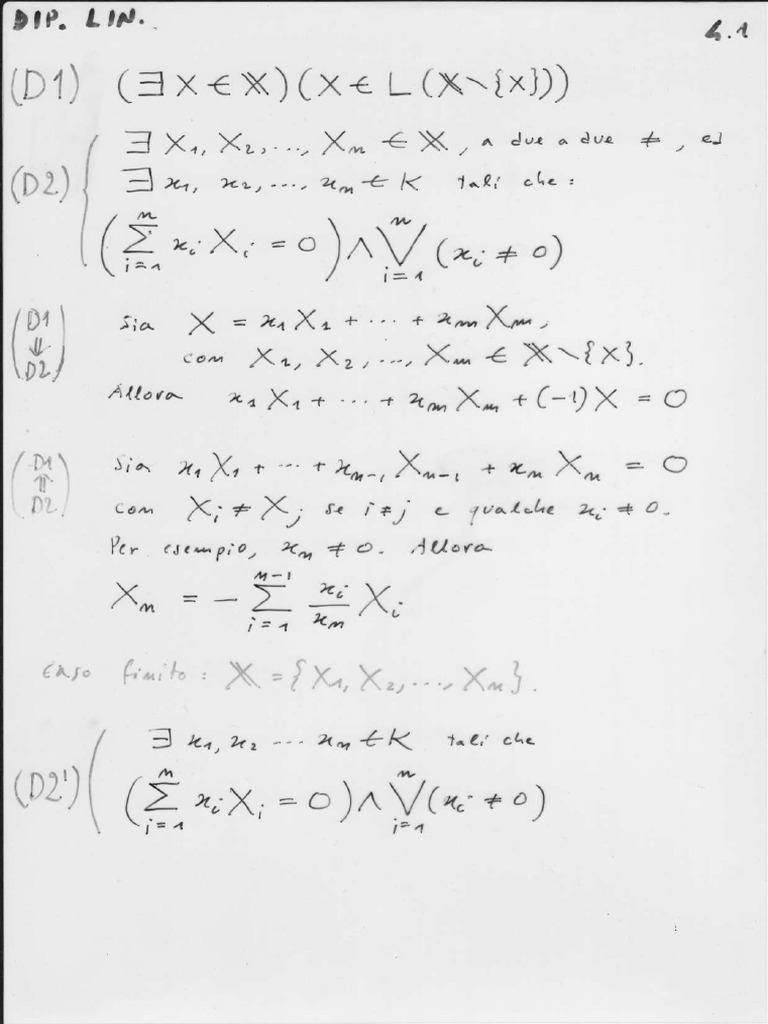 DIP. LIN.
4.1
(D1) (∃ X ∈ 𝕏)(X ∈ L(𝕏∖{X}))
(D2) { ∃ X₁, X₂, ..., Xₙ ∈ 𝕏, a due a due ≠, ed
∃ x₁, x₂, ..., xₙ ∈ K tali che:
(∑ⁿᵢ₌₁ xᵢ Xᵢ = 0) ∧ ⋁ⁿᵢ₌₁ (xᵢ ≠ 0)
(D1 ⇓ D2) Sia X = x₁X₁ + ··· + xₘXₘ,
con X₁, X₂, ..., Xₘ ∈ 𝕏∖{X}.
Allora x₁X₁ + ··· + xₘXₘ + (-1)X = 0
(D1 ⇑ D2) Sia x₁X₁ + ··· + xₙ₋₁Xₙ₋₁ + xₙXₙ = 0
con Xᵢ ≠ Xⱼ se i ≠ j e qualche xᵢ ≠ 0.
Per esempio, xₙ ≠ 0. Allora
Xₙ = - ∑ⁿ⁻¹ᵢ₌₁ xᵢ/xₙ Xᵢ
Caso finito: 𝕏 = {X₁, X₂, ..., Xₙ}.
(D2') ( ∃ x₁, x₂ ··· xₙ ∈ K tali che
(∑ⁿᵢ₌₁ xᵢ Xᵢ = 0) ∧ ⋁ⁿᵢ₌₁ (xᵢ ≠ 0)